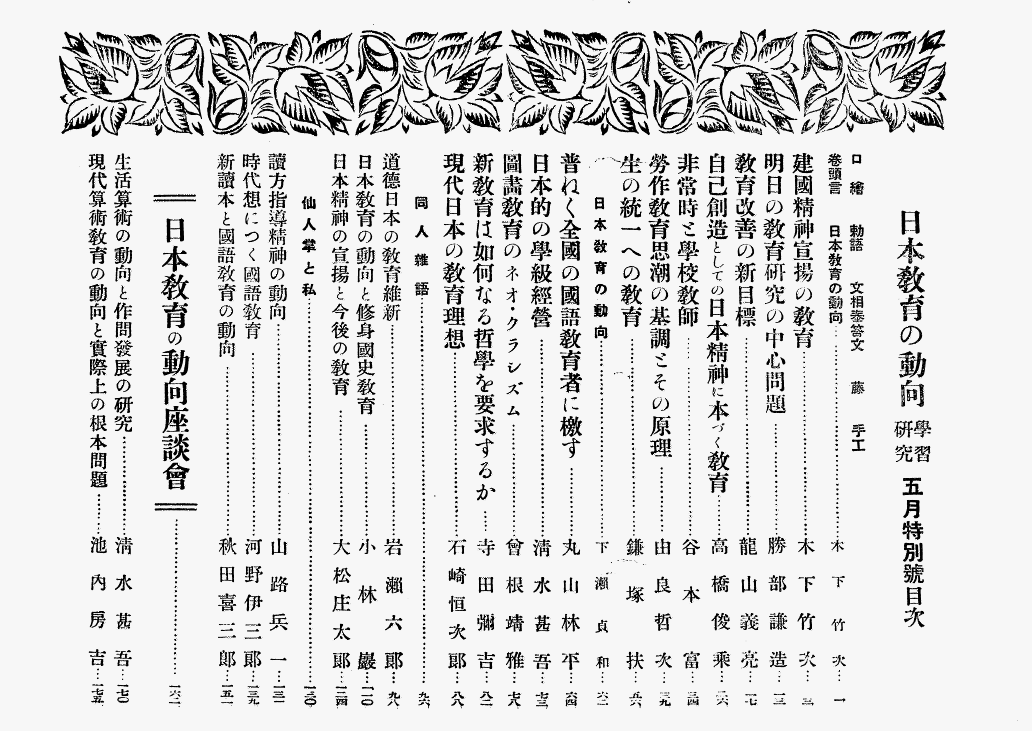 日本敎育の動向 學習研究 五月特別號目次
口繪 勅語 文相奉答文 藤 手工
卷頭言 日本敎育の動向……木下竹次…一
建國精神宣揚の敎育……木下竹次…三
明日の敎育硏究の中心問題……勝部謙造…一三
敎育改善の新目標……龍山義亮…一七
自己創造としての日本精神に本づく敎育……高橋俊乘…二六
非常時と學校敎師……谷本富…三四
勞作敎育思潮の基調とその原理……由良哲次…三九
生の統一への敎育……鎌塚扶…五六
日本敎育の動向……下瀨貞和…六三
普ねく全國の國語敎育者に檄す……丸山林平…六四
日本的の學級經營……淸水甚吾…七三
圖畵敎育のネオ・クラシズム……曾根靖雅…七八
新敎育は如何なる哲學を要求するか……寺田彌吉…八二
現代日本の敎育理想……石崎恒次郞…八八
同人雜語……九六
道德日本の敎育維新……岩瀨六郞…九八
日本敎育の動向と修身國史敎育……小林巖…一一〇
日本精神の宣揚と今後の敎育……大松庄太郞…一二四
仙人掌と私……一三〇
讀方指導精神の動向……山路兵一…一三一
時代想につく國語敎育……河野伊三郞…一三九
新讀本と國語敎育の動向……秋田喜三郞…一五一
日本敎育の動向座談會……一六二
生活算術の動向と作問發展の硏究……淸水甚吾…一七〇
現代算術敎育の動向と實際上の根本問題……池內房吉…一七五